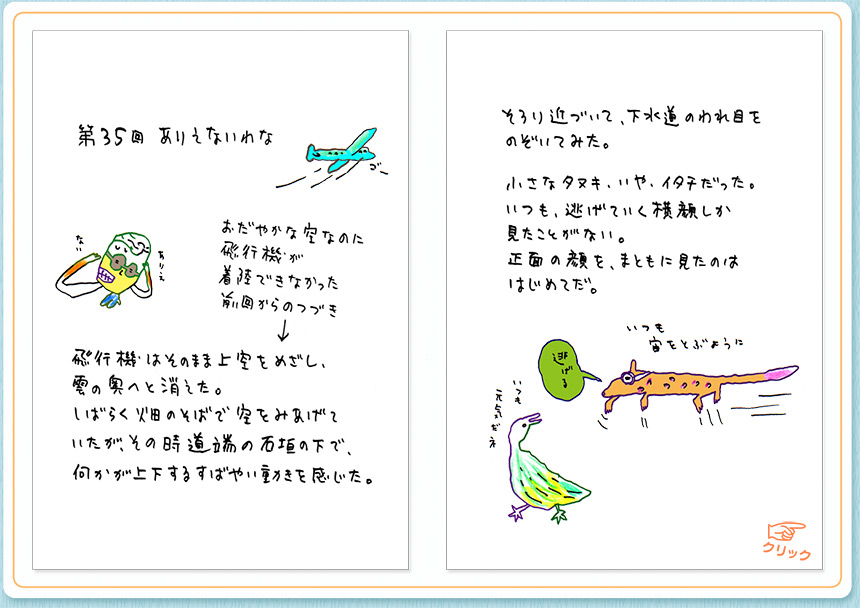 第35回 ありえないわな
ゴー
ない
ありえ
おだやかな空なのに
飛行機が
着陸できなかった
前回からのつづき
↓
飛行機はそのまま上空をめざし、
雲の奥へと消えた。
しばらく畑のそばで空をみあげて
いたが、その時道端の石垣の下で、
何かが上下するすばやい動きを感じた。
そろり近づいて、下水道のわれ目を
のぞいてみた。
小さなタヌキ、いや、イタチだった。
いつも、逃げていく横顔しか
見たことがない。
正面の顔を、まともに見たのは
はじめてだ。
いつも
宙をとぶように
逃げる
いつも
元気だネ
クリック